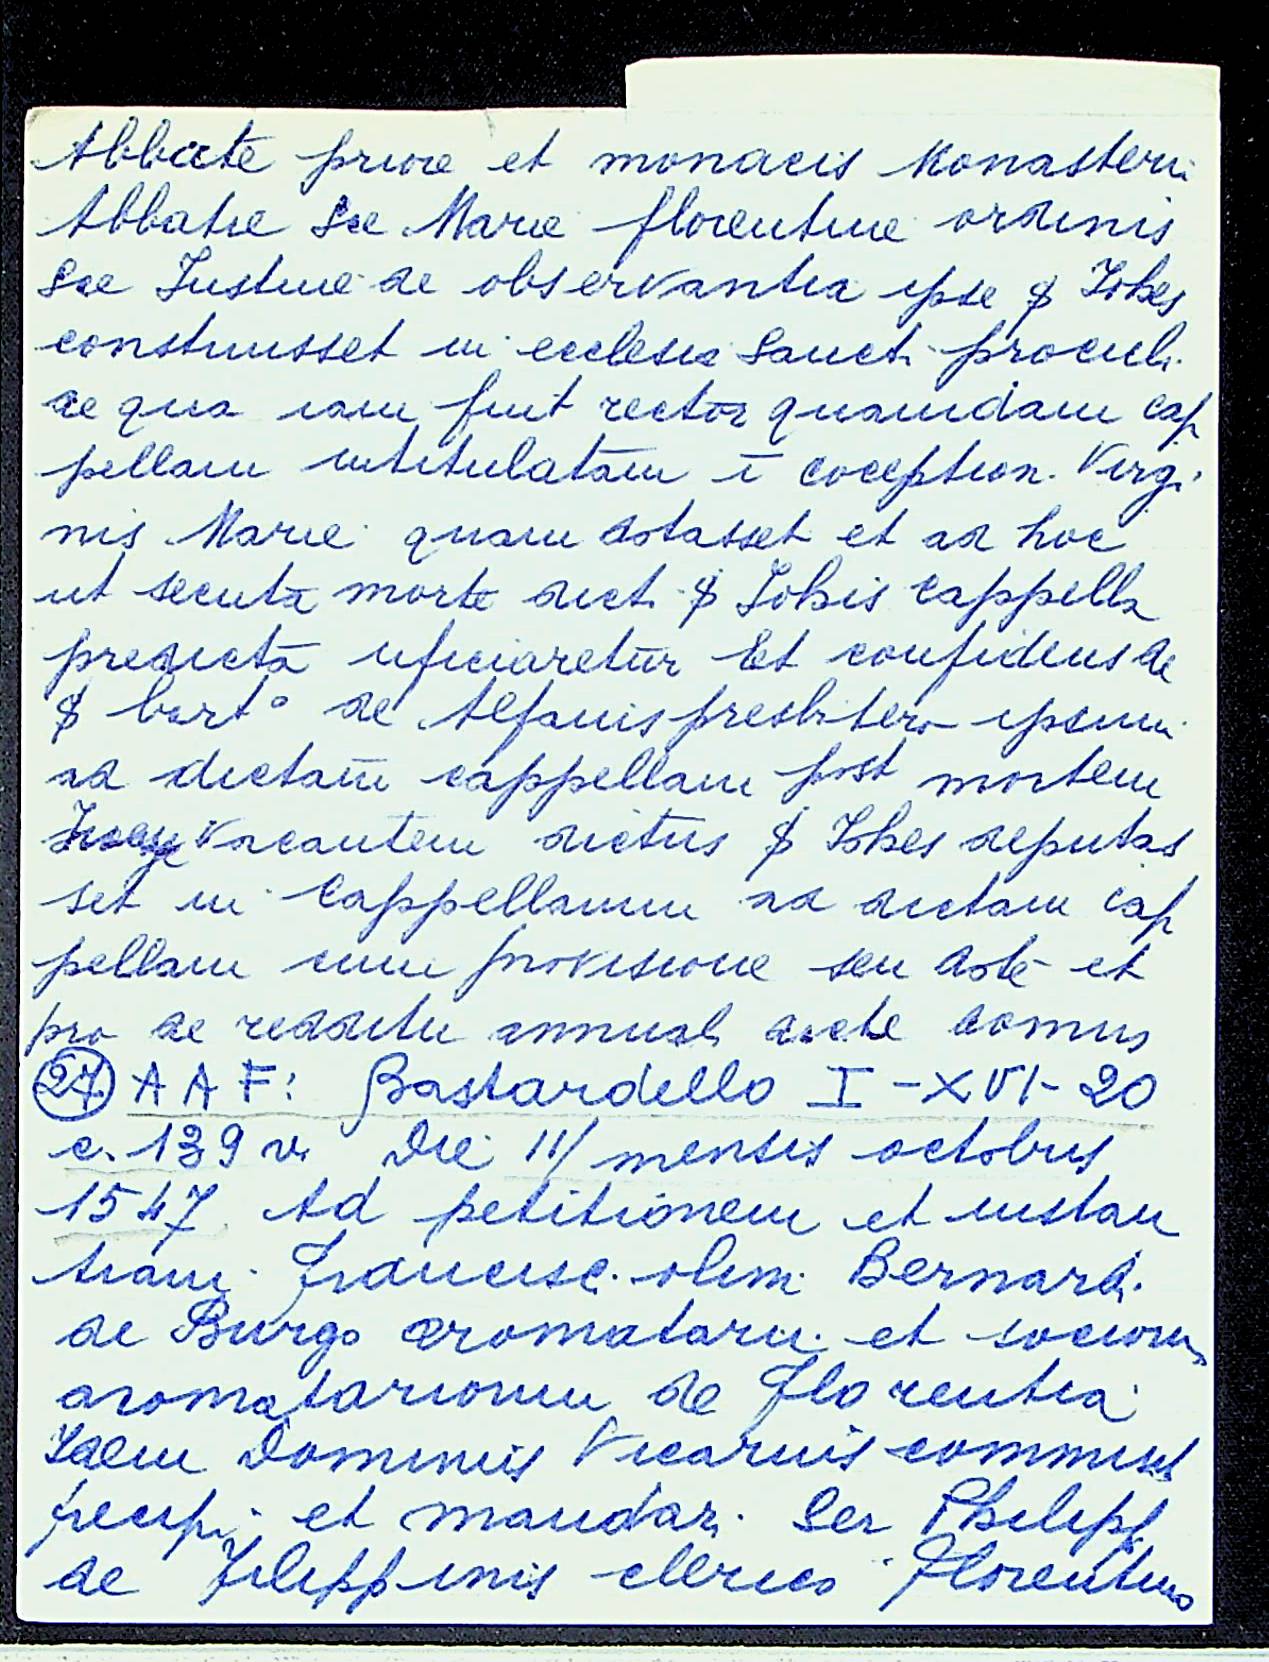 Abbate priore et monacis Monasterii
Abbatie Sce Marie florentine ordinis
Sce Justine de observantia ipse $ Johes
construisset in ecclesia Sancti proculi
de qua iam fuit rector quamdam cap
pellam intitulatam ī coception. Virgi
nis Marie quam dotasset et ad hoc
ut secuta morte dict. $ Johis cappella
predicta uficiaretur Et confidens de
$ bart° de Alfanis presbitero ipsum
ad dictam cappellam post mortem
vacantem dictus $ Johes deputas
set in Cappellanum ad dictam cap
pellam cum provisione seu dote et
pro de redditu annual dicte domus
27. A A F: Bastardello I-XVI-20
c. 139 v. Die 11/ mensis octobris
1547 Ad petitionem et instan
tiam Francisc. olim Bernard.
de Burgo aromatarii et sociorum
aromatariorum de Florentia
Idem Dominus Vicarius commisit
precipi. et mandar. Ser Philipp.
de Filippinis clerico Florentino